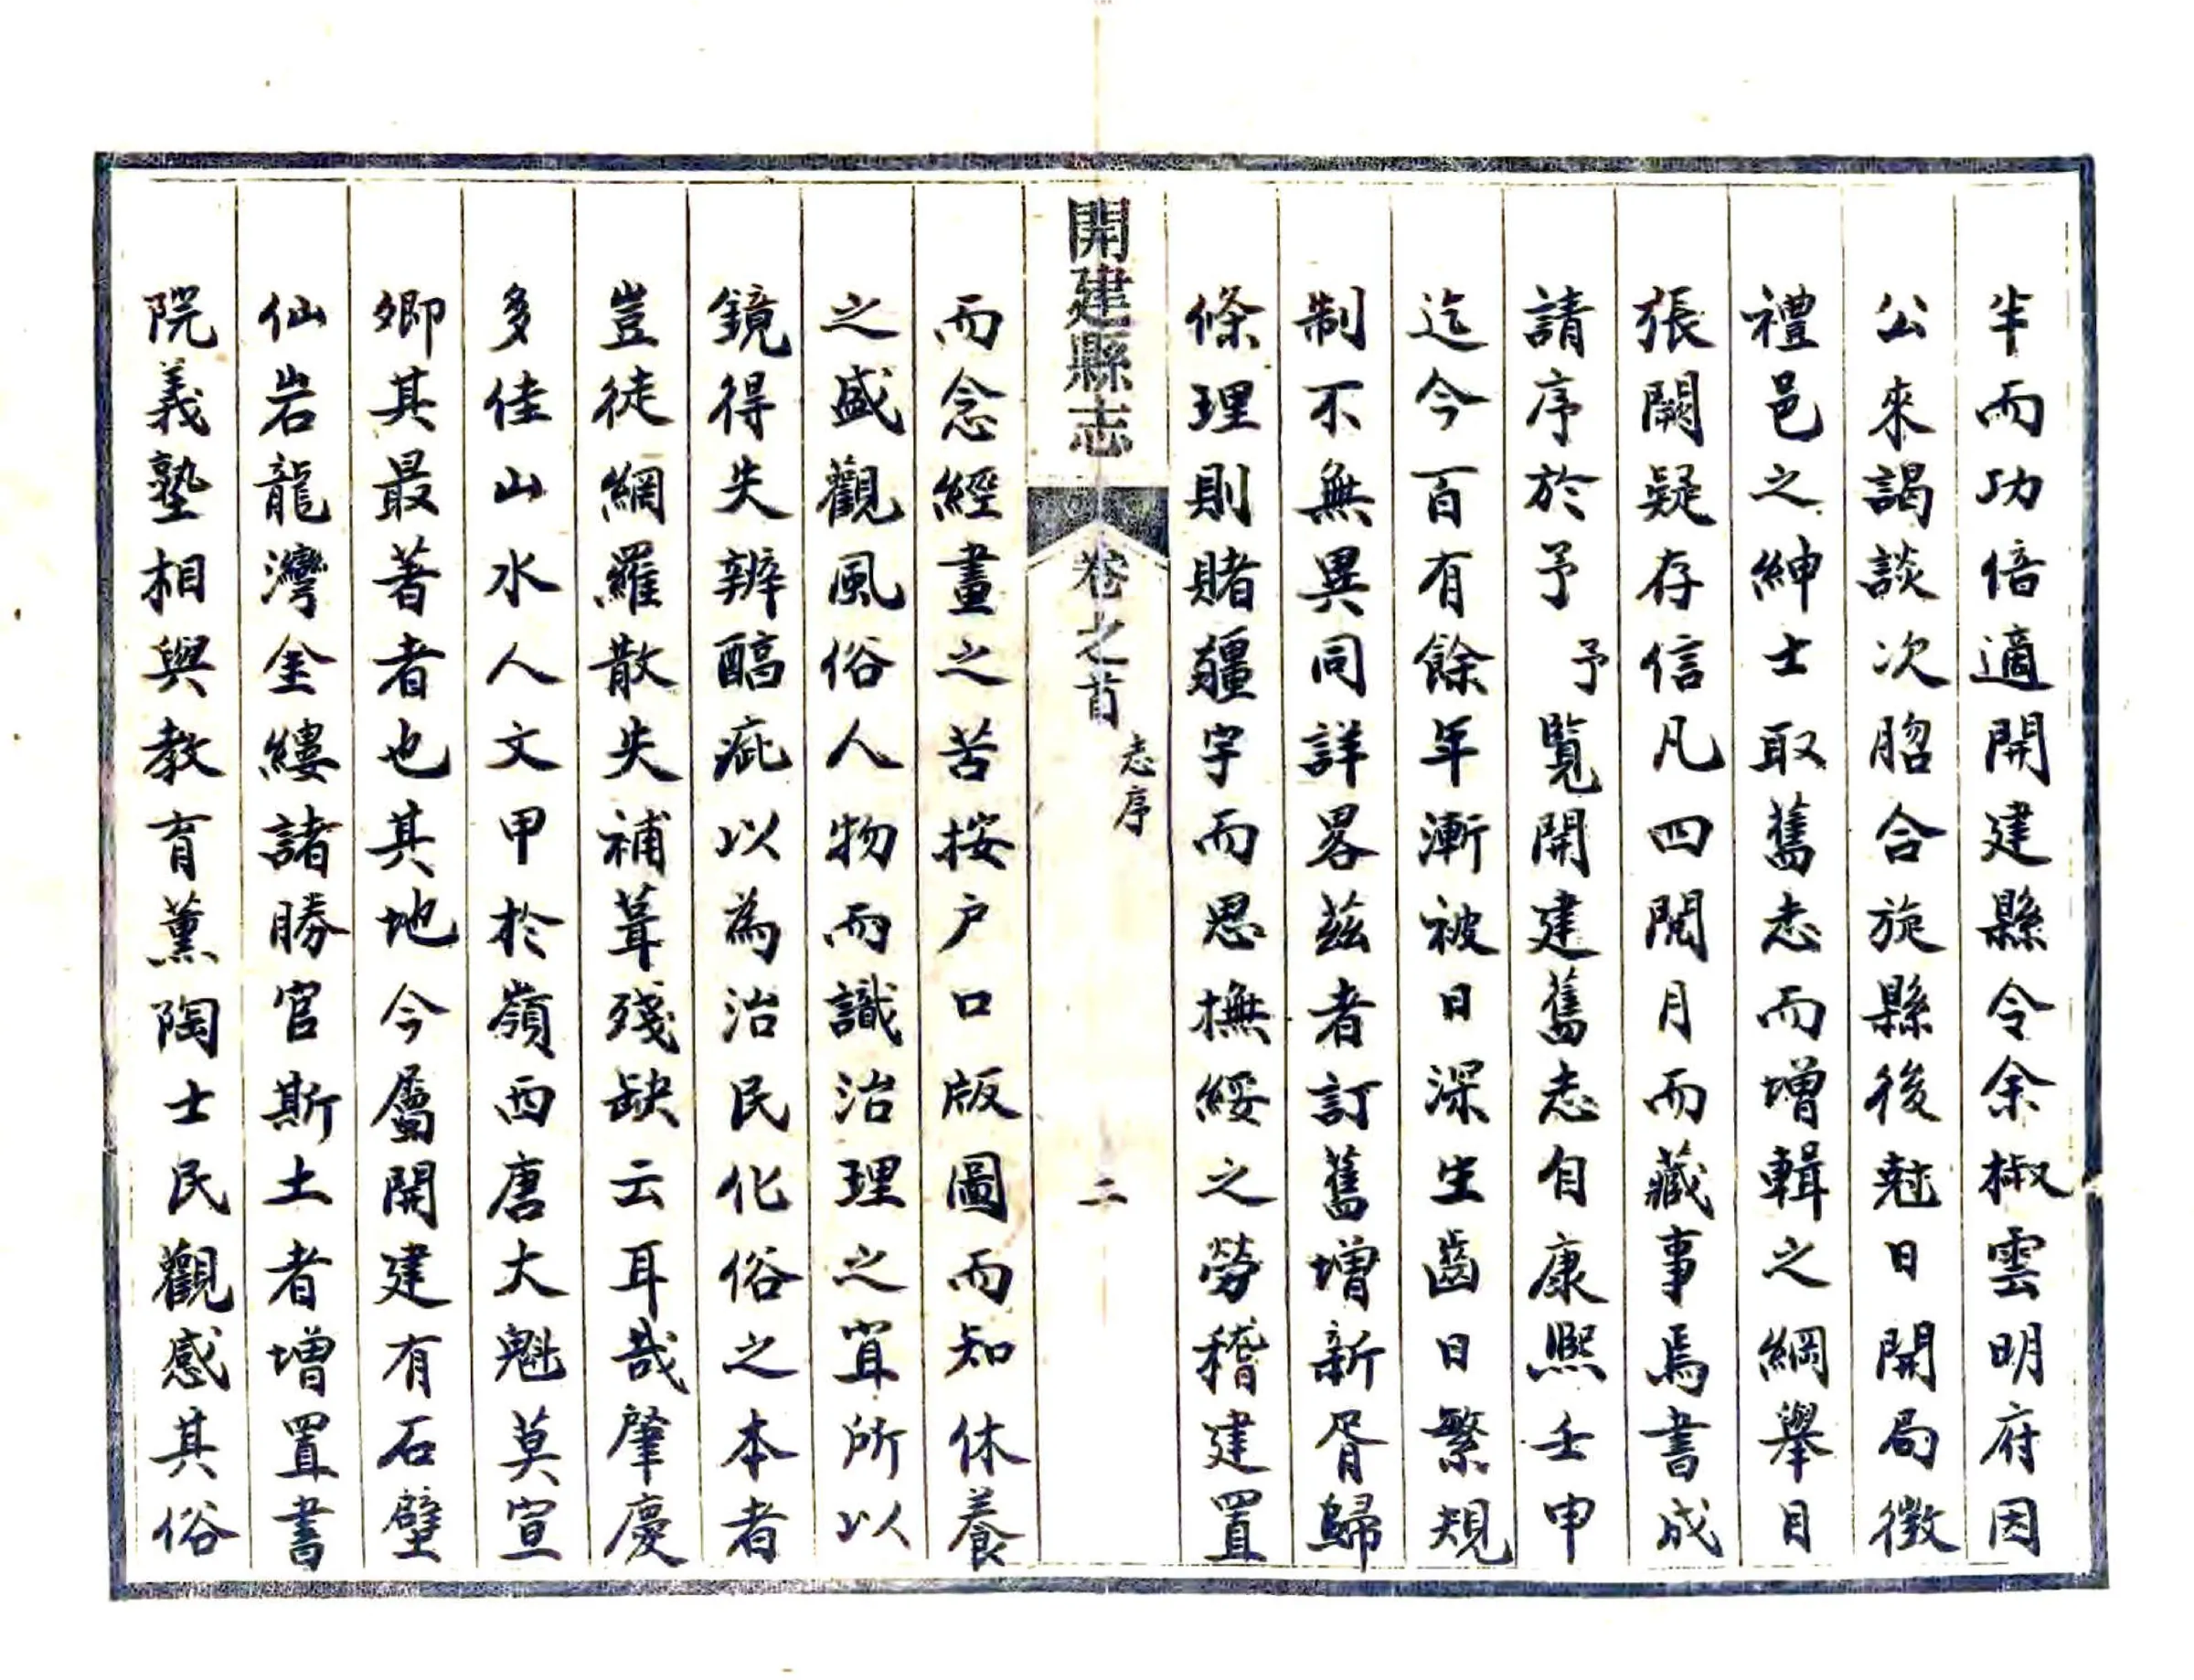 半而功倍適開建縣令余椒雲明府因
公來謁談次脗合旋縣後尅日開局徵
禮邑之紳士取舊志而增輯之綱舉目
張闕疑存信凡四閱月而蕆事焉書成
請序於予予覽開建舊志自康熙壬申
迄今百有餘年漸被日深生齒日繁規
制不無異同詳畧茲者訂舊增新胥歸
條理則賭疆宇而思撫綏之勞稽建置
開建縣志
卷之首
志序
二
而念經畫之苦按户口版圖而知休養
之盛觀風俗人物而識治理之宜所以
鏡得失辨醕疵以為治民化俗之本者
豈徒網羅散失補葺殘缺云耳哉肇慶
多佳山水人文甲於嶺西唐大魁莫宣
卿其最著者也其地今屬開建有石壁
仙岩龍灣金縷諸勝官斯土者增置書
院義塾相與教育薰陶士民觀感其俗